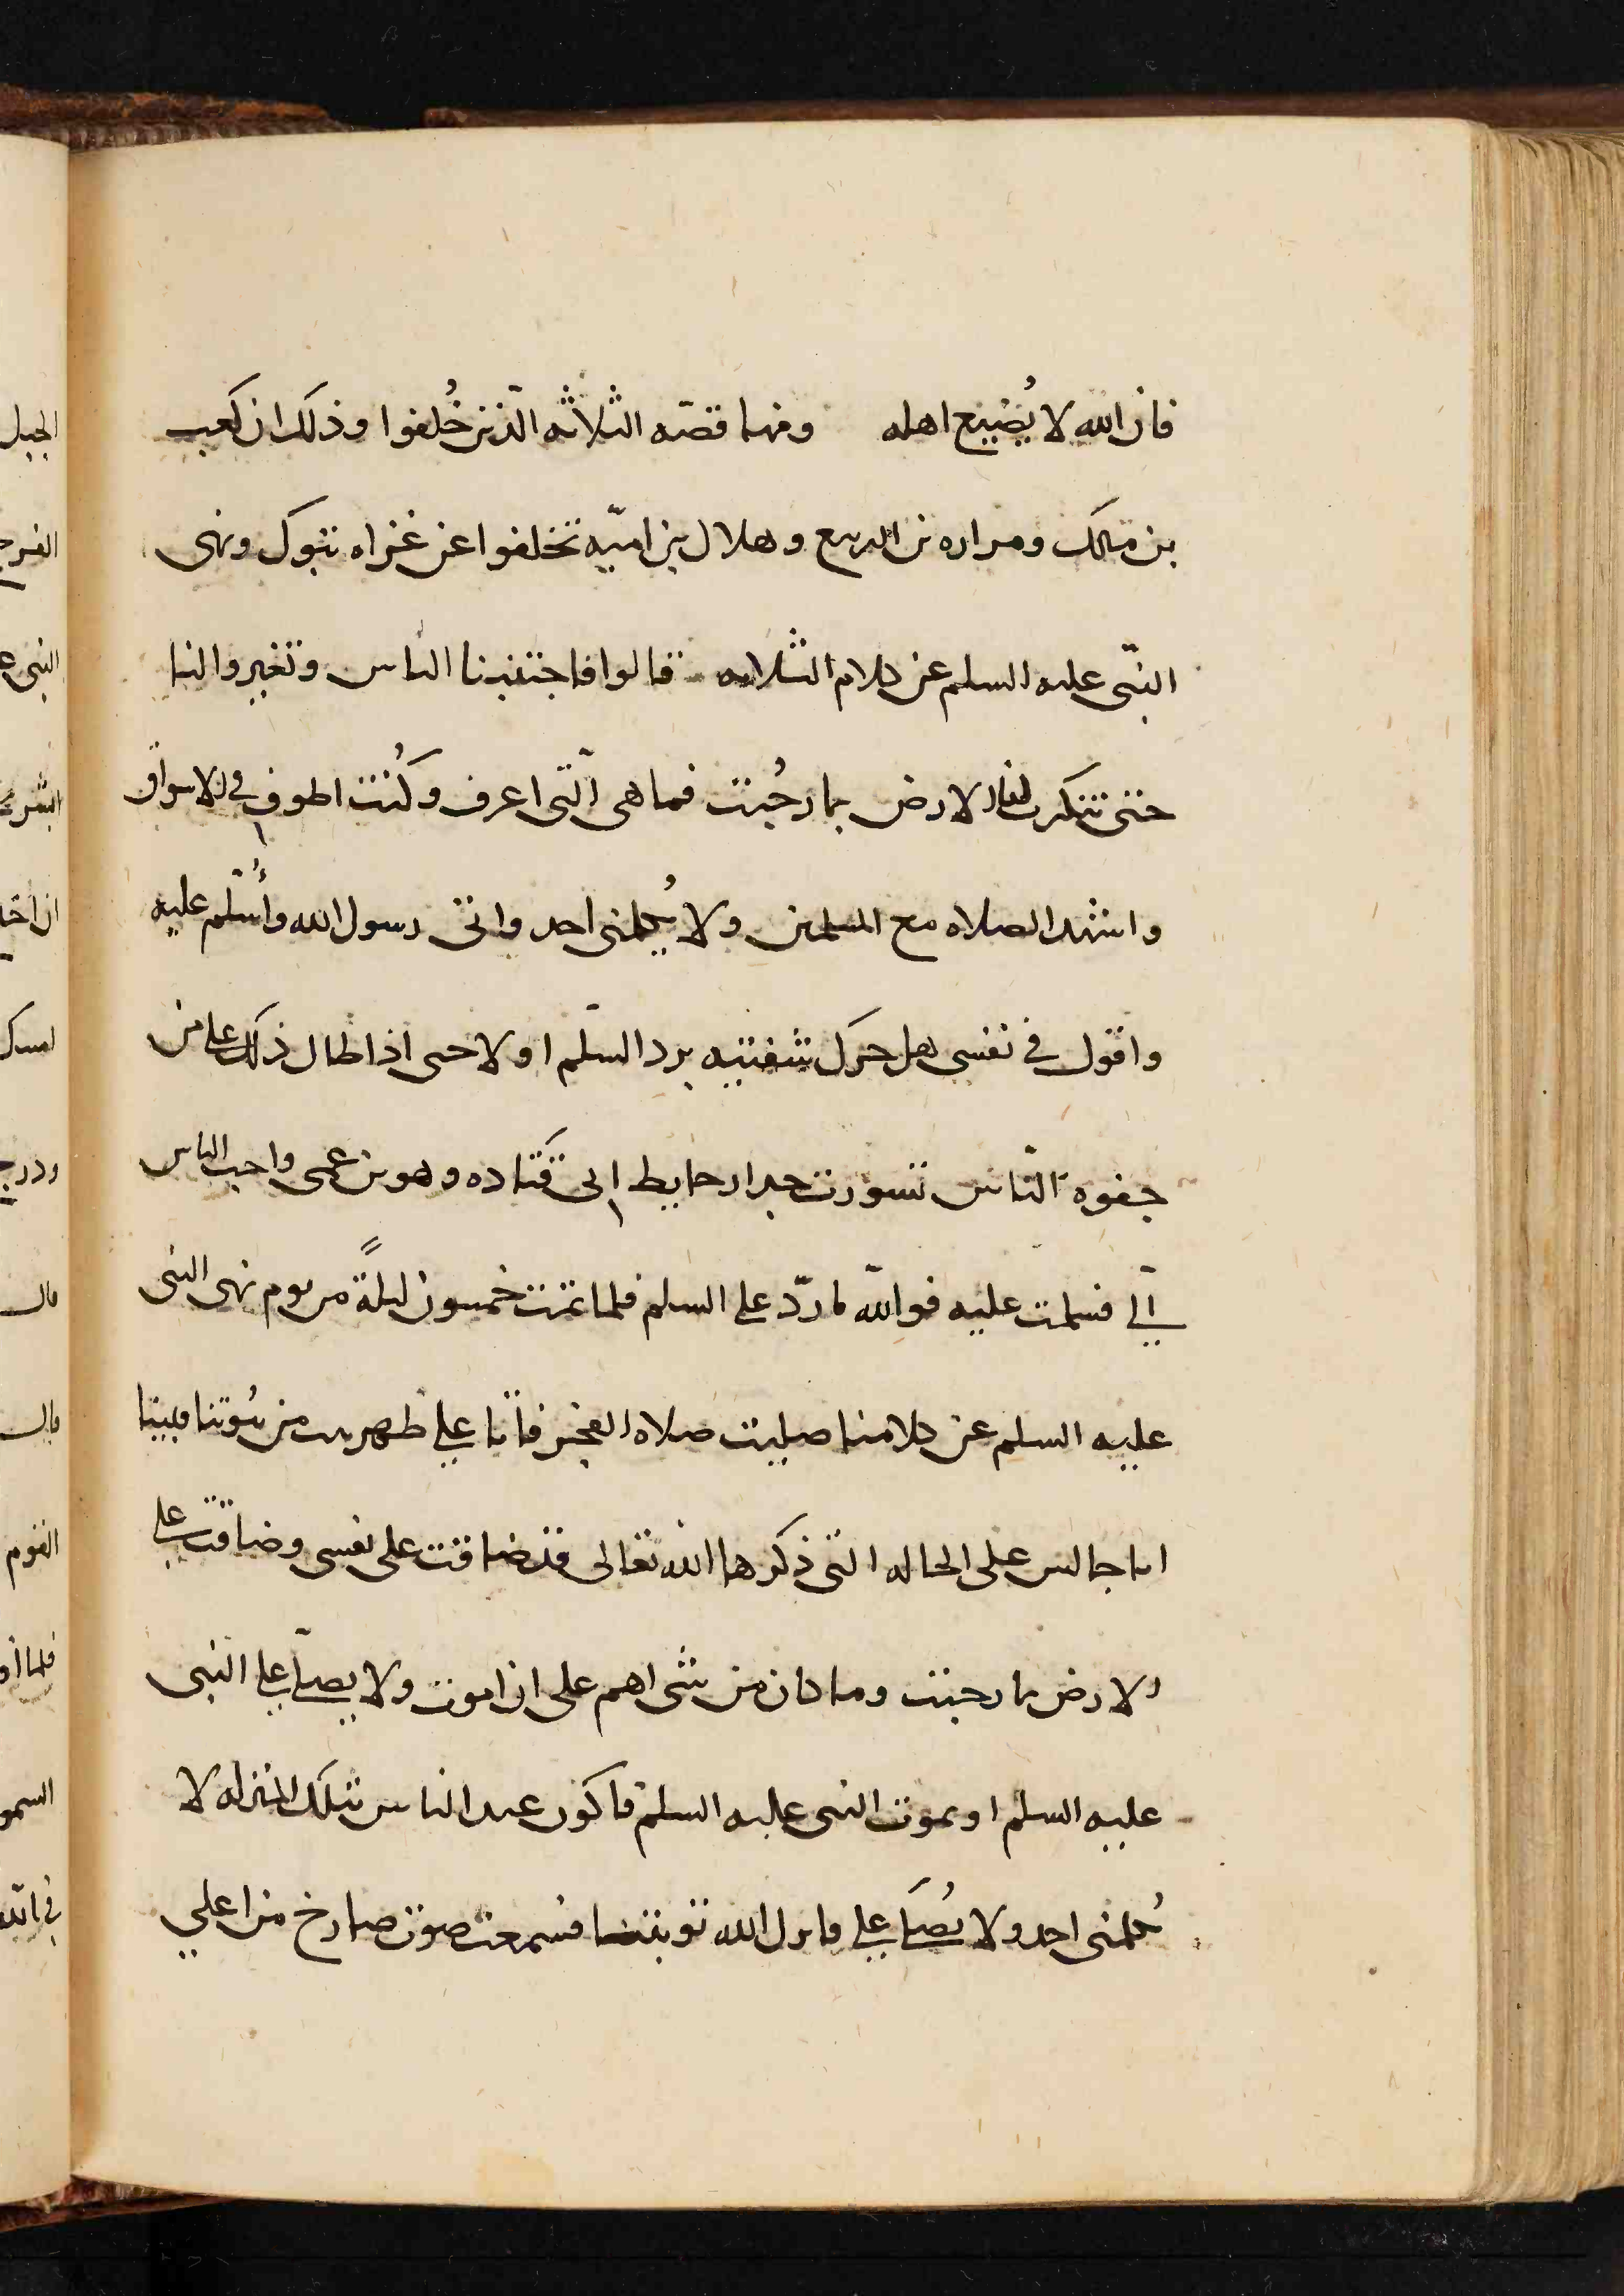 فان الله لا يُضيع اهله ومنها قصّه الثلاثه الّذين خُلفوا وذلك ان كعب
بن مالك ومراره بن الربيع وهلال بن اميّه تخلفوا عن غزاه تبوك ونهى
النبّى عليه السلم عن كلام الثلاثه قالوا فاجتنبنا الناس وتغيروا لنا
حتى تنكرت لنا الارض بما رحُبت فما هى الّتى اعرف وكُنت اطوف فى الاسواق
واشهد الصلاه مع المسلمين ولا يُكلمنى احد واتى رسول الله وأُسلّم عليه
واقول فى نفسى هل حرك شفتيه برد السلم او لا حتى اذا طال ذلك على من
جفوه النّاس تسورت جدار حايط ابى قتاده وهو بن عمى واحب الناس
الىّ فسلمت عليه فوالله ما ردّ على السلم فلما تمت خمسون ليلةً من يوم نهى النبى
عليه السلم عن كلامنا صليت صلاه الفجر فانا على ظهر بيت من بيُوتنا فبينا
انا جالس على الحاله التى ذكرها الله تعالى قد ضاقت على نفسى وضاقت على
الارض بما رحبت وما كان من شى اهم على ان اموت ولا يصلّى على النبى
عليه السلم او يموت النبى عليه السلم فاكون عند الناس بتلك المنزله لا
يُكلمنى احد ولا يُصلَى على فانزل الله توبتنا فسمعت صوت صارخ من اعلى
الجبل
النبى
ان اخذ
قال
قال
القوم